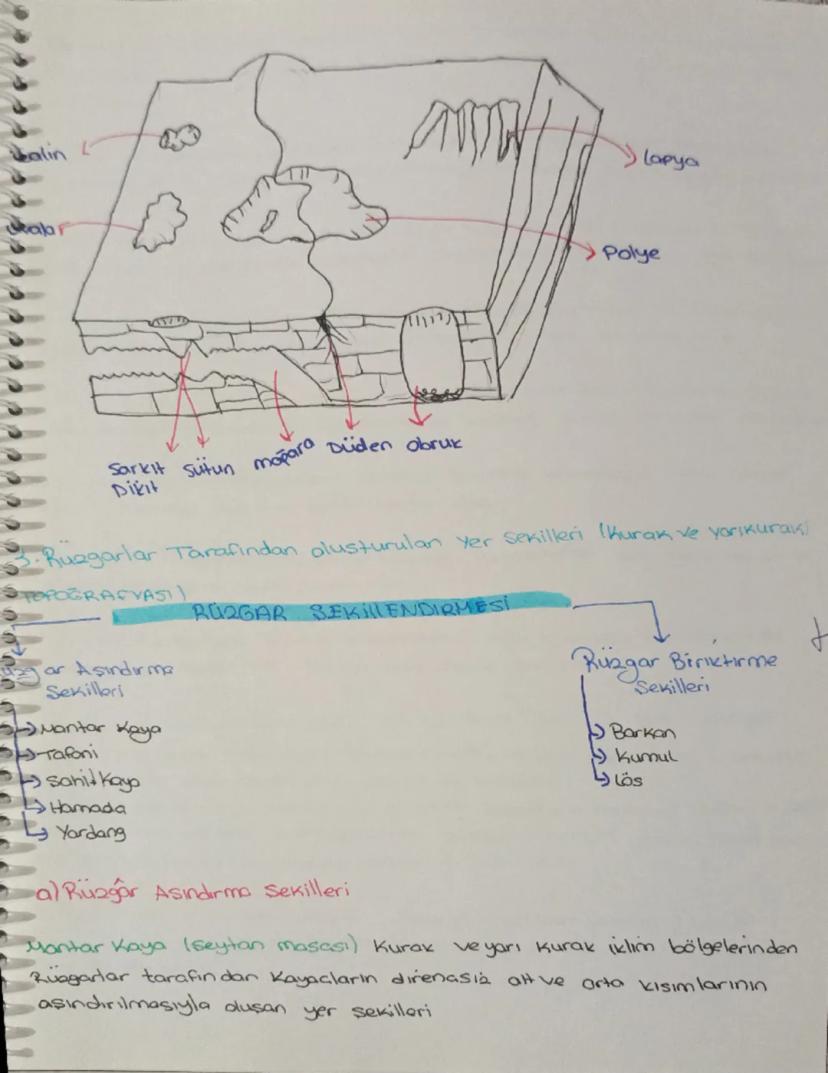 Lapya
Polye
Sarkıt Sütun mağara Düden obruk
Dikit
3. Rüzgarlar Tarafından oluşturulan yer şekilleri (Kurak ve yarıkurak
TOPOĞRAFYASI)
RÜZGAR ŞEKİLLENDİRMESİ
Aşındırma
Şekilleri
Rüzgar Biriktirme
Şekilleri
Mantar Kaya
Tafoni
Şahit Kaya
Hamada
Yardang
Barkan
Kumul
Lös
a) Rüzgâr Asındırma Sekilleri
Mantar Kaya (Seytan masası) Kurak ve yarı kurak iklim bölgelerinden
Rüzgarlar tarafından Kayacların direnasiz alt ve orta kısımlarının
aşındırılmasıyla oluşan yer şekilleri